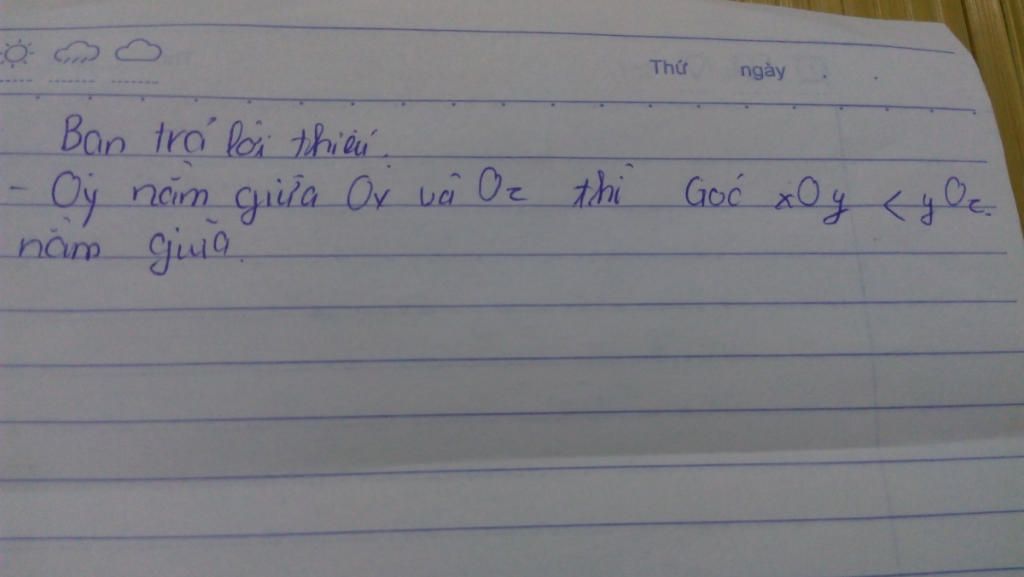 Thứ ngày . .
Bạn trả lời thiếu.
- Oy nằm giữa Ox và Oz thì Góc xOy < yOz.
nằm giữa.